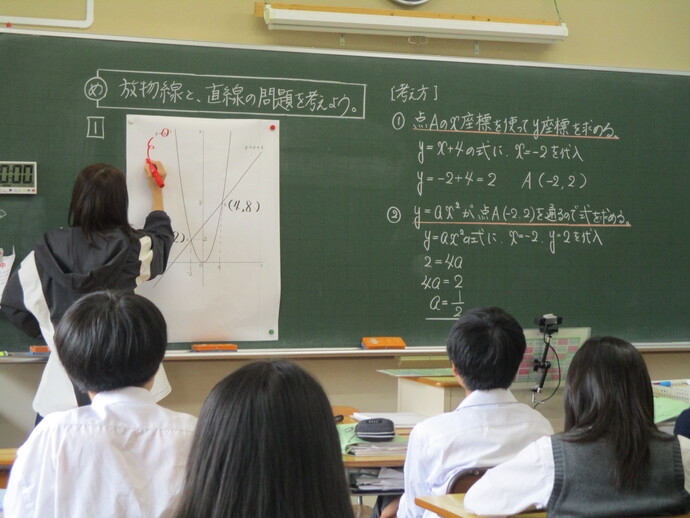 め 放物線と、直線の問題を考えよう。
1
(4,8)
2)
:00
[考え方]
① 点Aのx座標を使ってy座標を求める。
y=x+4の式に、x=-2を代入
y=-2+4=2 A(-2,2)
② y=ax²が、点A(-2,2)を通るので式を求める。
y=ax²の式に、x=-2、y=2を代入
2=4a
4a=2
a=1/2